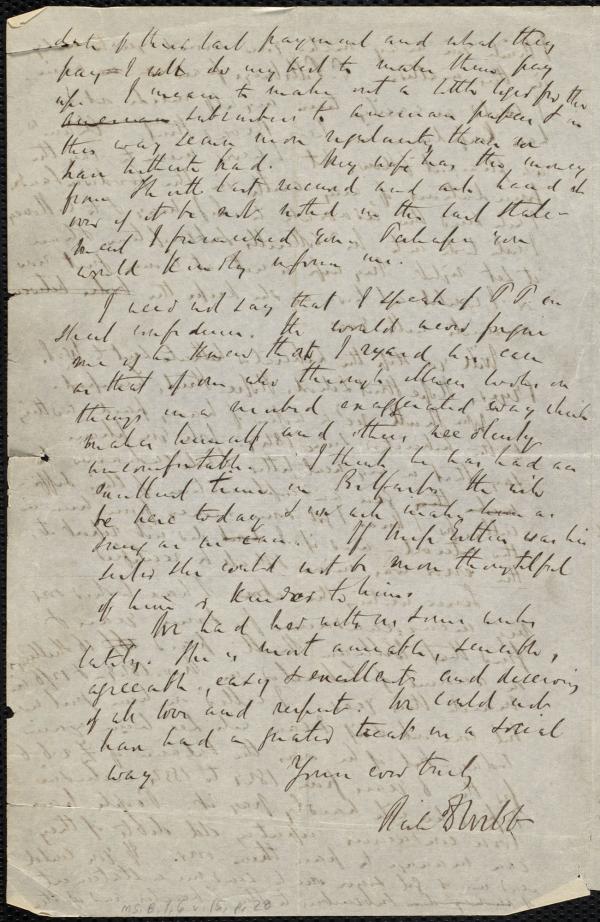 date of their last payment and what they
pay – I will do my best to make them pay
up. I mean to make out a little ledger for the
American subscribers to American papers & in
this way secure more regularity than we
have hitherto had. My wife has the money
from Smith last received and will hand it
over if it be not noted in the last state-
ment I furnished you. Perhaps you
would kindly inform me.
I need not say that I speak of P.P. in
strict confidence. He would never forgive
me if he knew that I regard his case
as that of one who through illness looks on
things in a morbid exaggerated way which
makes himself and others needlessly
uncomfortable. I think he has had an
excellent time in Belfast. He will
be here today & we will make him as
snug as we can. If Miss Estlin was his
sister she could not be more thoughtful
of him or kinder to him.
We had her with us some weeks
lately. She is most amiable, sensible,
agreeable, easy & excellent and deserving
of all love and respect. We could not
have had a greater treat in a social
way. Yours ever truly
Rich D Webb
MS. B. 1. 6 v. 15, p. 28